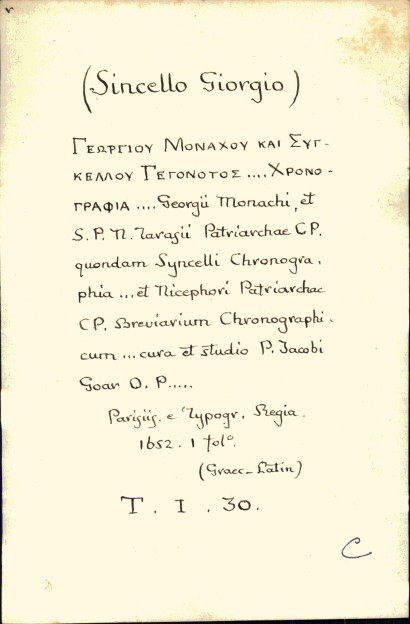 (Sincello Giorgio)
ΓΕΩΡΓΙΟΥ ΜΟΝΑΧΟΥ ΚΑΙ ΣΥΓ-
ΚΕΛΛΟΥ ΓΕΓΟΝΟΤΟΣ .... ΧΡΟΝΟ-
ΓΡΑΦΙΑ .... Georgii Monachi, et
S. P. N. Tarasii Patriarchae CP.
quondam Syncelli Chronogra-
phia ... et Nicephori Patriarchae
CP. Breviarium Chronographi-
cum ... cura et studio P. Jacobi
Goar O. P.....
Parisiis. e Typogr. Regia.
1652. 1 folº.
(Graec-Latin)
T. I. 30.
C